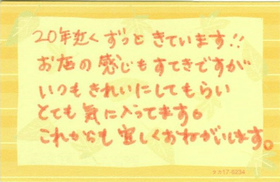 20年近くずっときています!!
お店の感じもすてきですが
いつもきれいにしてもらい
とても気に入ってます。
これからも宜しくおねがいします。